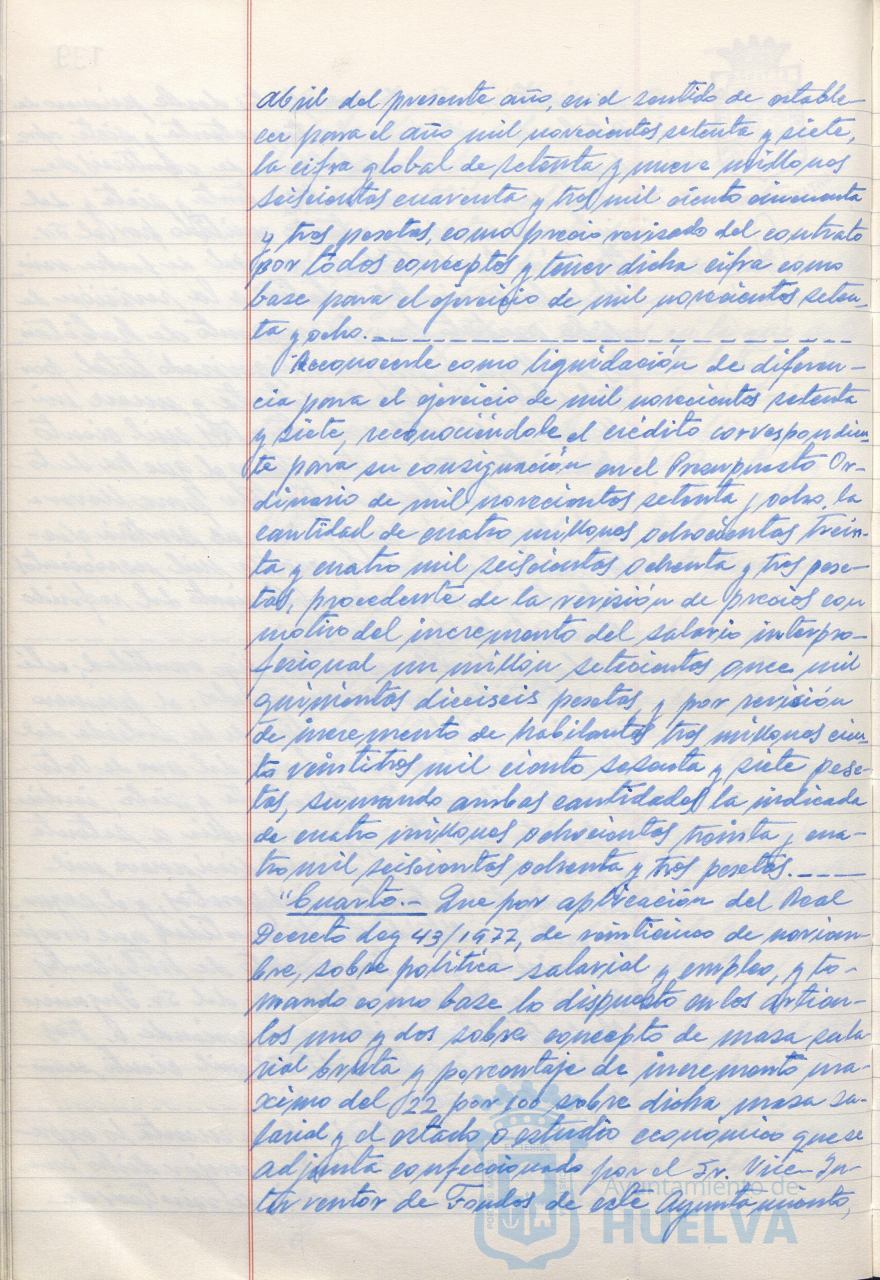 abril del presente año, en el sentido de estable-
cer para el año mil novecientos setenta y siete,
la cifra global de setenta y nueve millones
seiscientos cuarenta y tres mil ciento cincuenta
y tres pesetas, como precio revisado del contrato
por todos conceptos y tener dicha cifra como
base para el ejercicio de mil novecientos seten-
ta y ocho.
Reconocerle como liquidación de diferen-
cia para el ejercicio de mil novecientos setenta
y siete, reconociéndole el crédito correspondien-
te para su consignación en el Presupuesto Or-
dinario de mil novecientos setenta y ocho, la
cantidad de cuatro millones ochocientos trein-
ta y cuatro mil seiscientos ochenta y tres pese-
tas, procedente de la revisión de precios con
motivo del incremento del salario interpro-
fesional un millón setecientos once mil
quinientos dieciseis pesetas, y por revisión
de incremento de habitantes tres millones cien-
to veintitres mil ciento sesenta y siete pese-
tas, sumando ambas cantidades la indicada
de cuatro millones ochocientos treinta y cua-
tro mil seiscientos ochenta y tres pesetas.
"Cuarto.- Que por aplicación del Real
Decreto Ley 43/1977, de veinticinco de noviem-
bre, sobre política salarial y empleo, y to-
mando como base lo dispuesto en los artícu-
los uno y dos sobre concepto de masa sala-
rial bruta y porcentaje de incremento má-
ximo del 22 por 100 sobre dicha masa sa-
larial y el estado o estudio económico que se
adjunta confeccionado por el Sr. Vice-In-
terventor de Fondos de este Ayuntamiento,
Ayuntamiento de
HUELVA